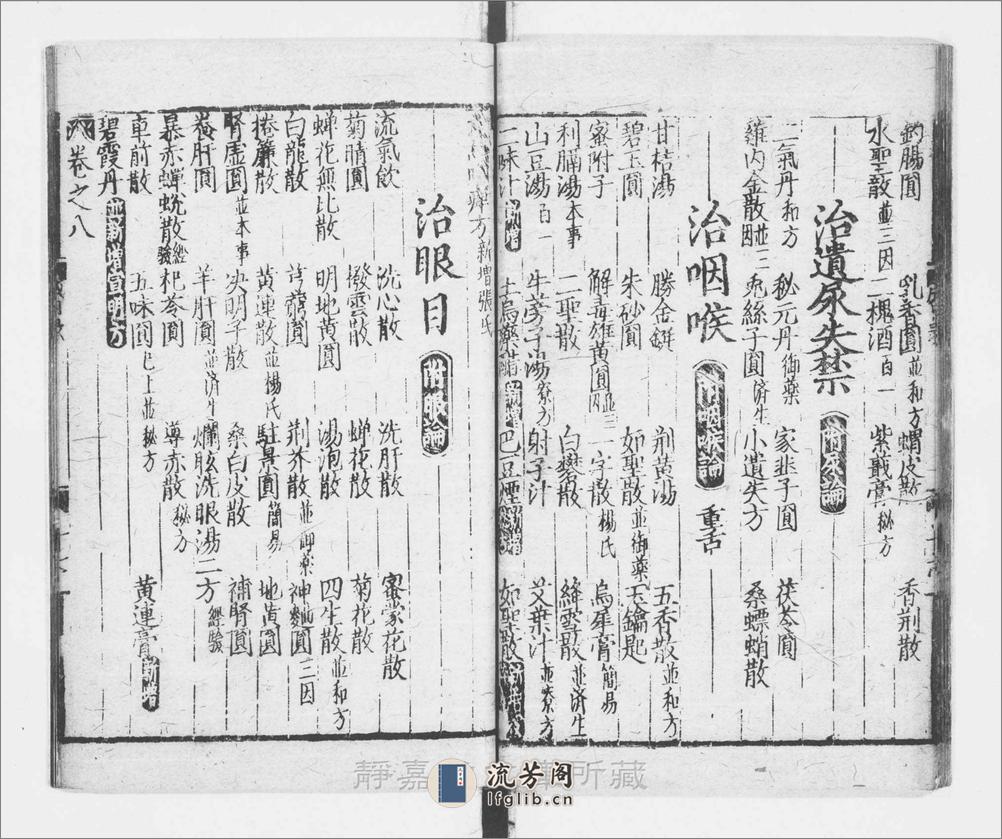 釣腸圓 乳香圓並和方 蝟皮散 香荆散
水聖散並三因 二槐酒百一 紫戟膏秘方
治遺尿失禁 附失論
二氣丹和方 秘元丹御藥 家韭子圓 茯苓圓
雞內金散並三因 兎絲子圓済生 小遺失方 桑螵蛸散
治咽喉 附咽喉論 重舌
甘桔湯 勝金鋌 荆黄湯 五香散並和方
碧玉圓 朱砂圓 如聖散並御藥 玉鑰匙
蜜附子 解毒雄黄圓並三因 一字散楊氏 烏犀膏簡易
利膈湯本事 二聖散 白礬散 絳雪散並済生
山豆湯百一 牛蒡子湯 射干汁 艾葉汁
二味汁新增 巴豆煙新增 如聖散
痺方新增張氏
治眼目 附眼論
流氣飲 洗心散 洗肝散 蜜蒙花散
菊睛圓 撥雲散 蟬花散 菊花散
蟬花無比散 明地黄圓 湯泡散 四生散並和方
白龍散 芎藭圓 荆芥散並御藥 神麴圓三因
捲簾散 黄連散並楊氏 駐景圓簡易 地黄圓
腎虚圓並本事 决明子散 桑白皮散 補腎圓
養肝圓 羊肝圓並済生 爛眩洗眼湯二方經驗
暴赤蟬蛻散經驗 杞苓圓 導赤散秘方
車前散 五味圓已上並秘方 黄連膏新增
碧霞丹並新增宣明方
卷之八
靜嘉 所藏
流芳阁
lfglib.cn